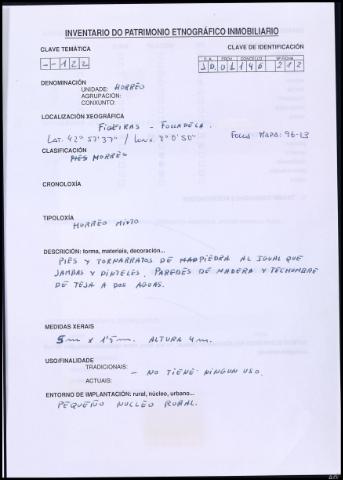 INVENTARIO DO PATRIMONIO ETNOGRÁFICO INMOBILIARIO
CLAVE TEMÁTICA
CLAVE DE IDENTIFICACIÓN
--122
C.A. PROV. CONCELLO Nº FICHA
212
DENOMINACIÓN
UNIDADE: HORREO
AGRUPACIÓN:
CONXUNTO:
LOCALIZACIÓN XEOGRÁFICA
FIGEIRAS - FOLLADELA.
LAT. 42º 57'37" / LONX. 8º 0'50"
FOLLA MAPA: 96-L3
CLASIFICACIÓN
HORREO
CRONOLOXÍA
TIPOLOXÍA
HORREO MIXTO
DESCRICIÓN: forma, materiais, decoración...
PIES Y TORNARRATOS DE AL IGUAL QUE
JAMBAS Y DINTELES. PAREDES DE MADERA Y TECHUMBRE
DE TEJA A DOS AGUAS.
MEDIDAS XERAIS
5m x 1'5m. ALTURA 4m.
USO/FINALIDADE
TRADICIONAIS:
- NO TIENE NINGUN USO.
ACTUAIS:
ENTORNO DE IMPLANTACIÓN: rural, núcleo, urbano...
PEQUEÑO NUCLEO RURAL.